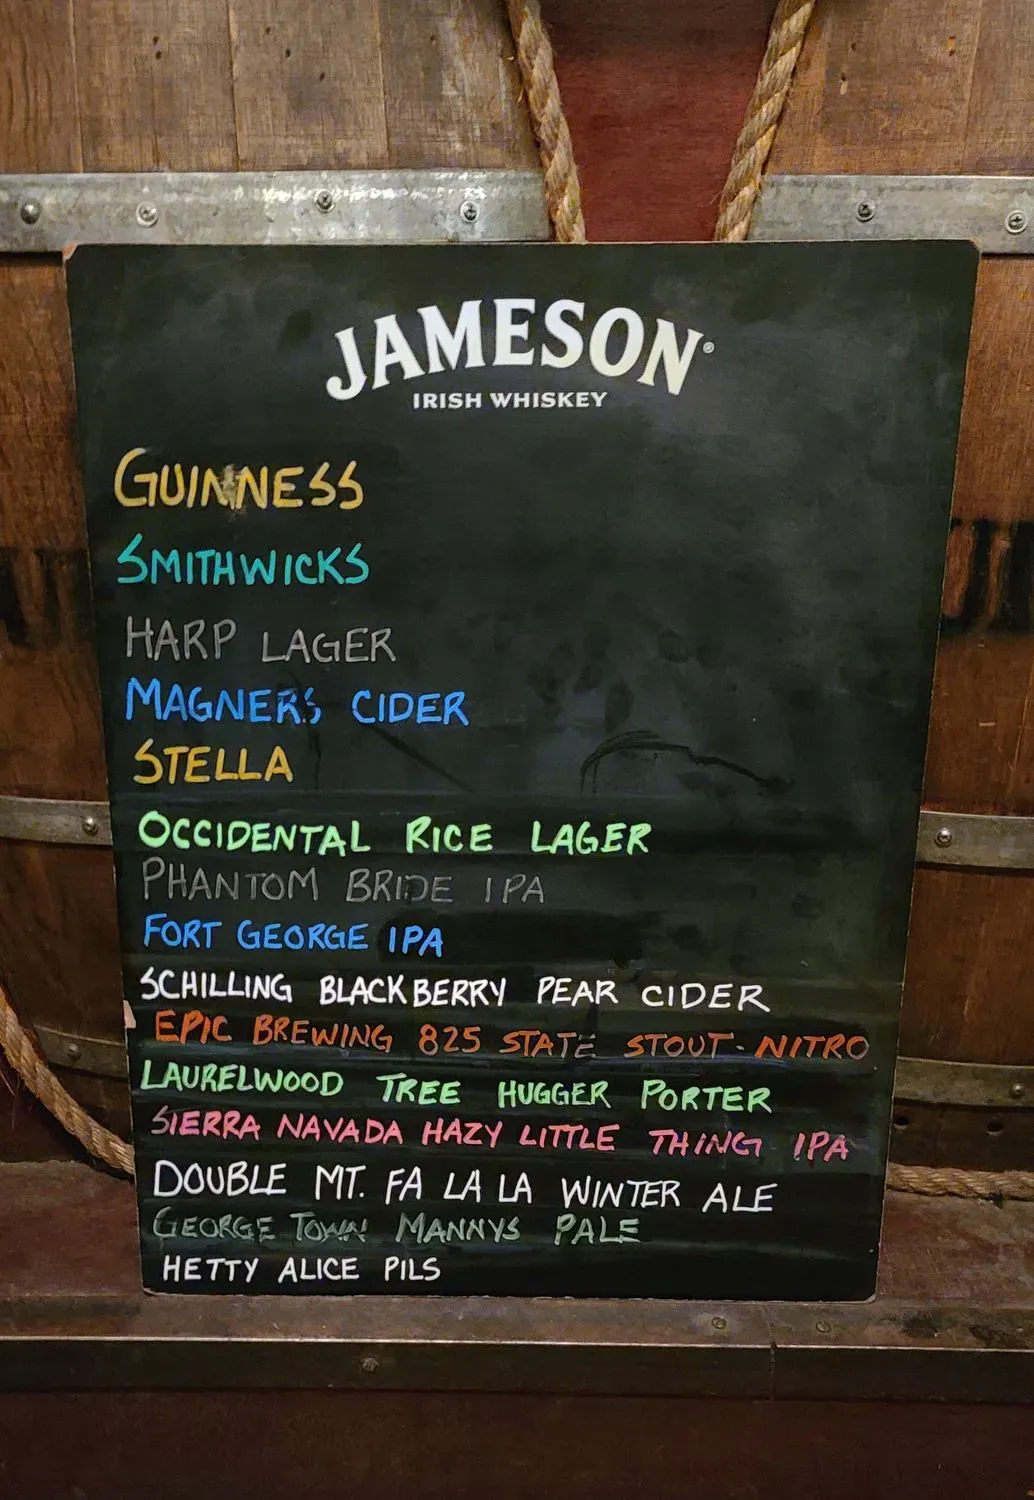 JAMESON®
IRISH WHISKEY
GUINNESS
SMITHWICKS
HARP LAGER
MAGNERS CIDER
STELLA
OCCIDENTAL RICE LAGER
PHANTOM BRIDE IPA
FORT GEORGE IPA
SCHILLING BLACKBERRY PEAR CIDER
EPIC BREWING 825 STATE STOUT-NITRO
LAURELWOOD TREE HUGGER PORTER
SIERRA NAVADA HAZY LITTLE THING IPA
DOUBLE MT. FA LA LA WINTER ALE
GEORGE TOWN MANNYS PALE
HETTY ALICE PILS